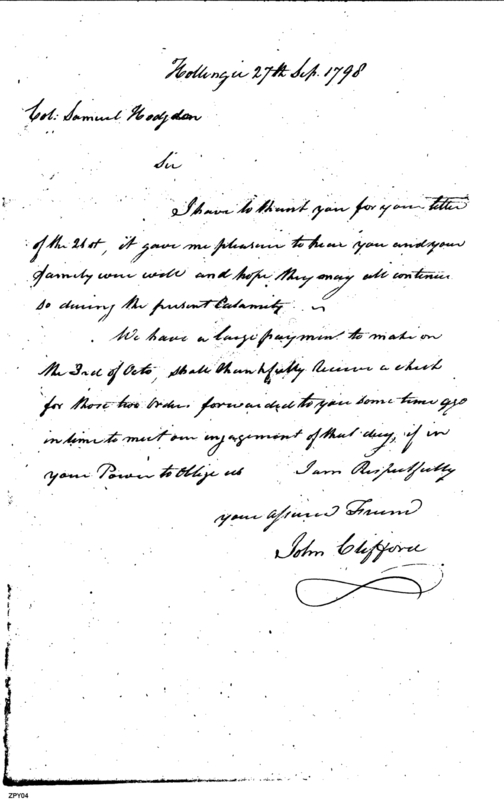 Hollinger 27th Sep. 1798
Col: Samuel Hodgdon
Sir
I have to thank you for your letter
of the 21st, it gave me pleasure to hear you and your
family were well and hope they may all continue
so during the present Calamity.
We have a large payment to make on
the 3rd of Octo, shall thankfully receive a check
for those two orders forwarded to you some time ago
in time to meet our engagement of that day, if in
your Power to Oblige us I am Respectfully
your assured Friend
John Clifford
ZPY04